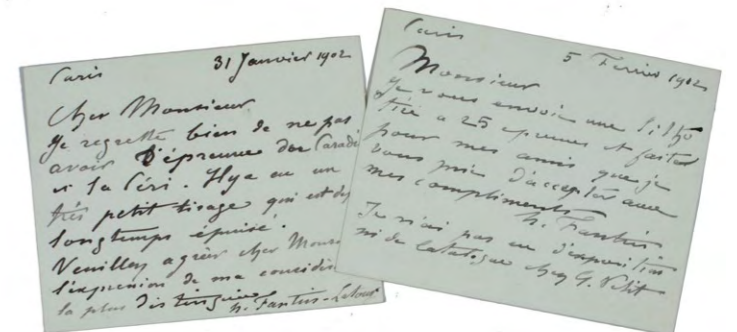 Paris 31 Janvier 1902
Cher Monsieur
Je regrette bien de ne pas
avoir d'épreuve du Paradis
et la Péri. Il y a eu un
très petit tirage qui est depuis
longtemps épuisé.
Veuillez agréer cher Monsieur
l'expression de ma considération
la plus distinguée
h. Fantin-Latour
Paris 5 Février 1902
Monsieur
Je vous envoie une litho
tirée à 25 épreuves et faite
pour mes amis que je
vous prie d'accepter avec
mes compliments
h. Fantin
Je n'ai pas eu d'exposition
ni de Catalogue chez G. Petit